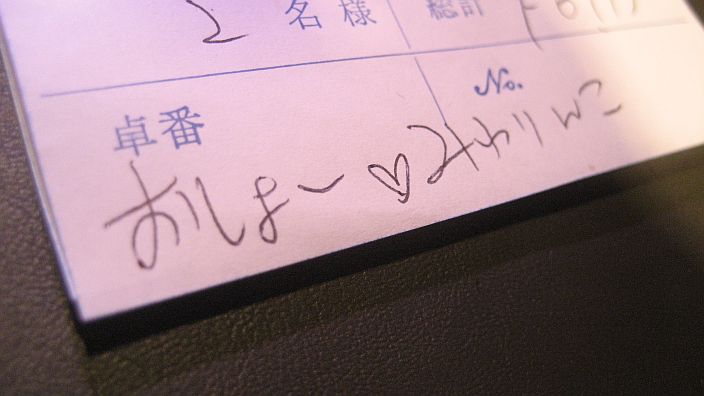 2 名様 総計
卓番 No.
おりしょー♡みわりんこ